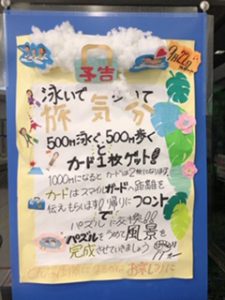 予告
泳いで 歩いて
旅気分
500m泳ぐ、500m歩く
と
カード1枚ゲット!!
1000mになるとカードは2枚になります
カードはスマイルガードへ距離を
伝えもらいます!帰りにフロント
で
パズルに交換!!
パズルをうめて風景を
完成させていきましょう